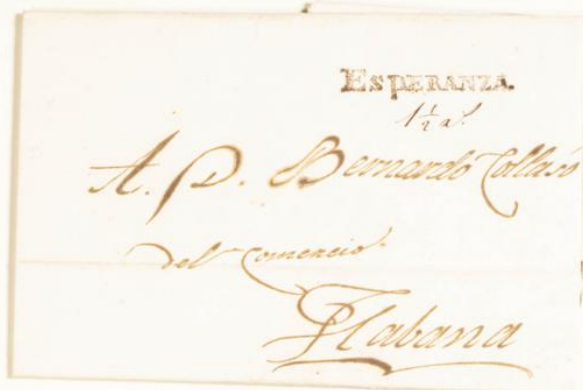 ESPERANZA.
1½ a.s
A. D. Bernardo Collaso
del Comercio.
Habana